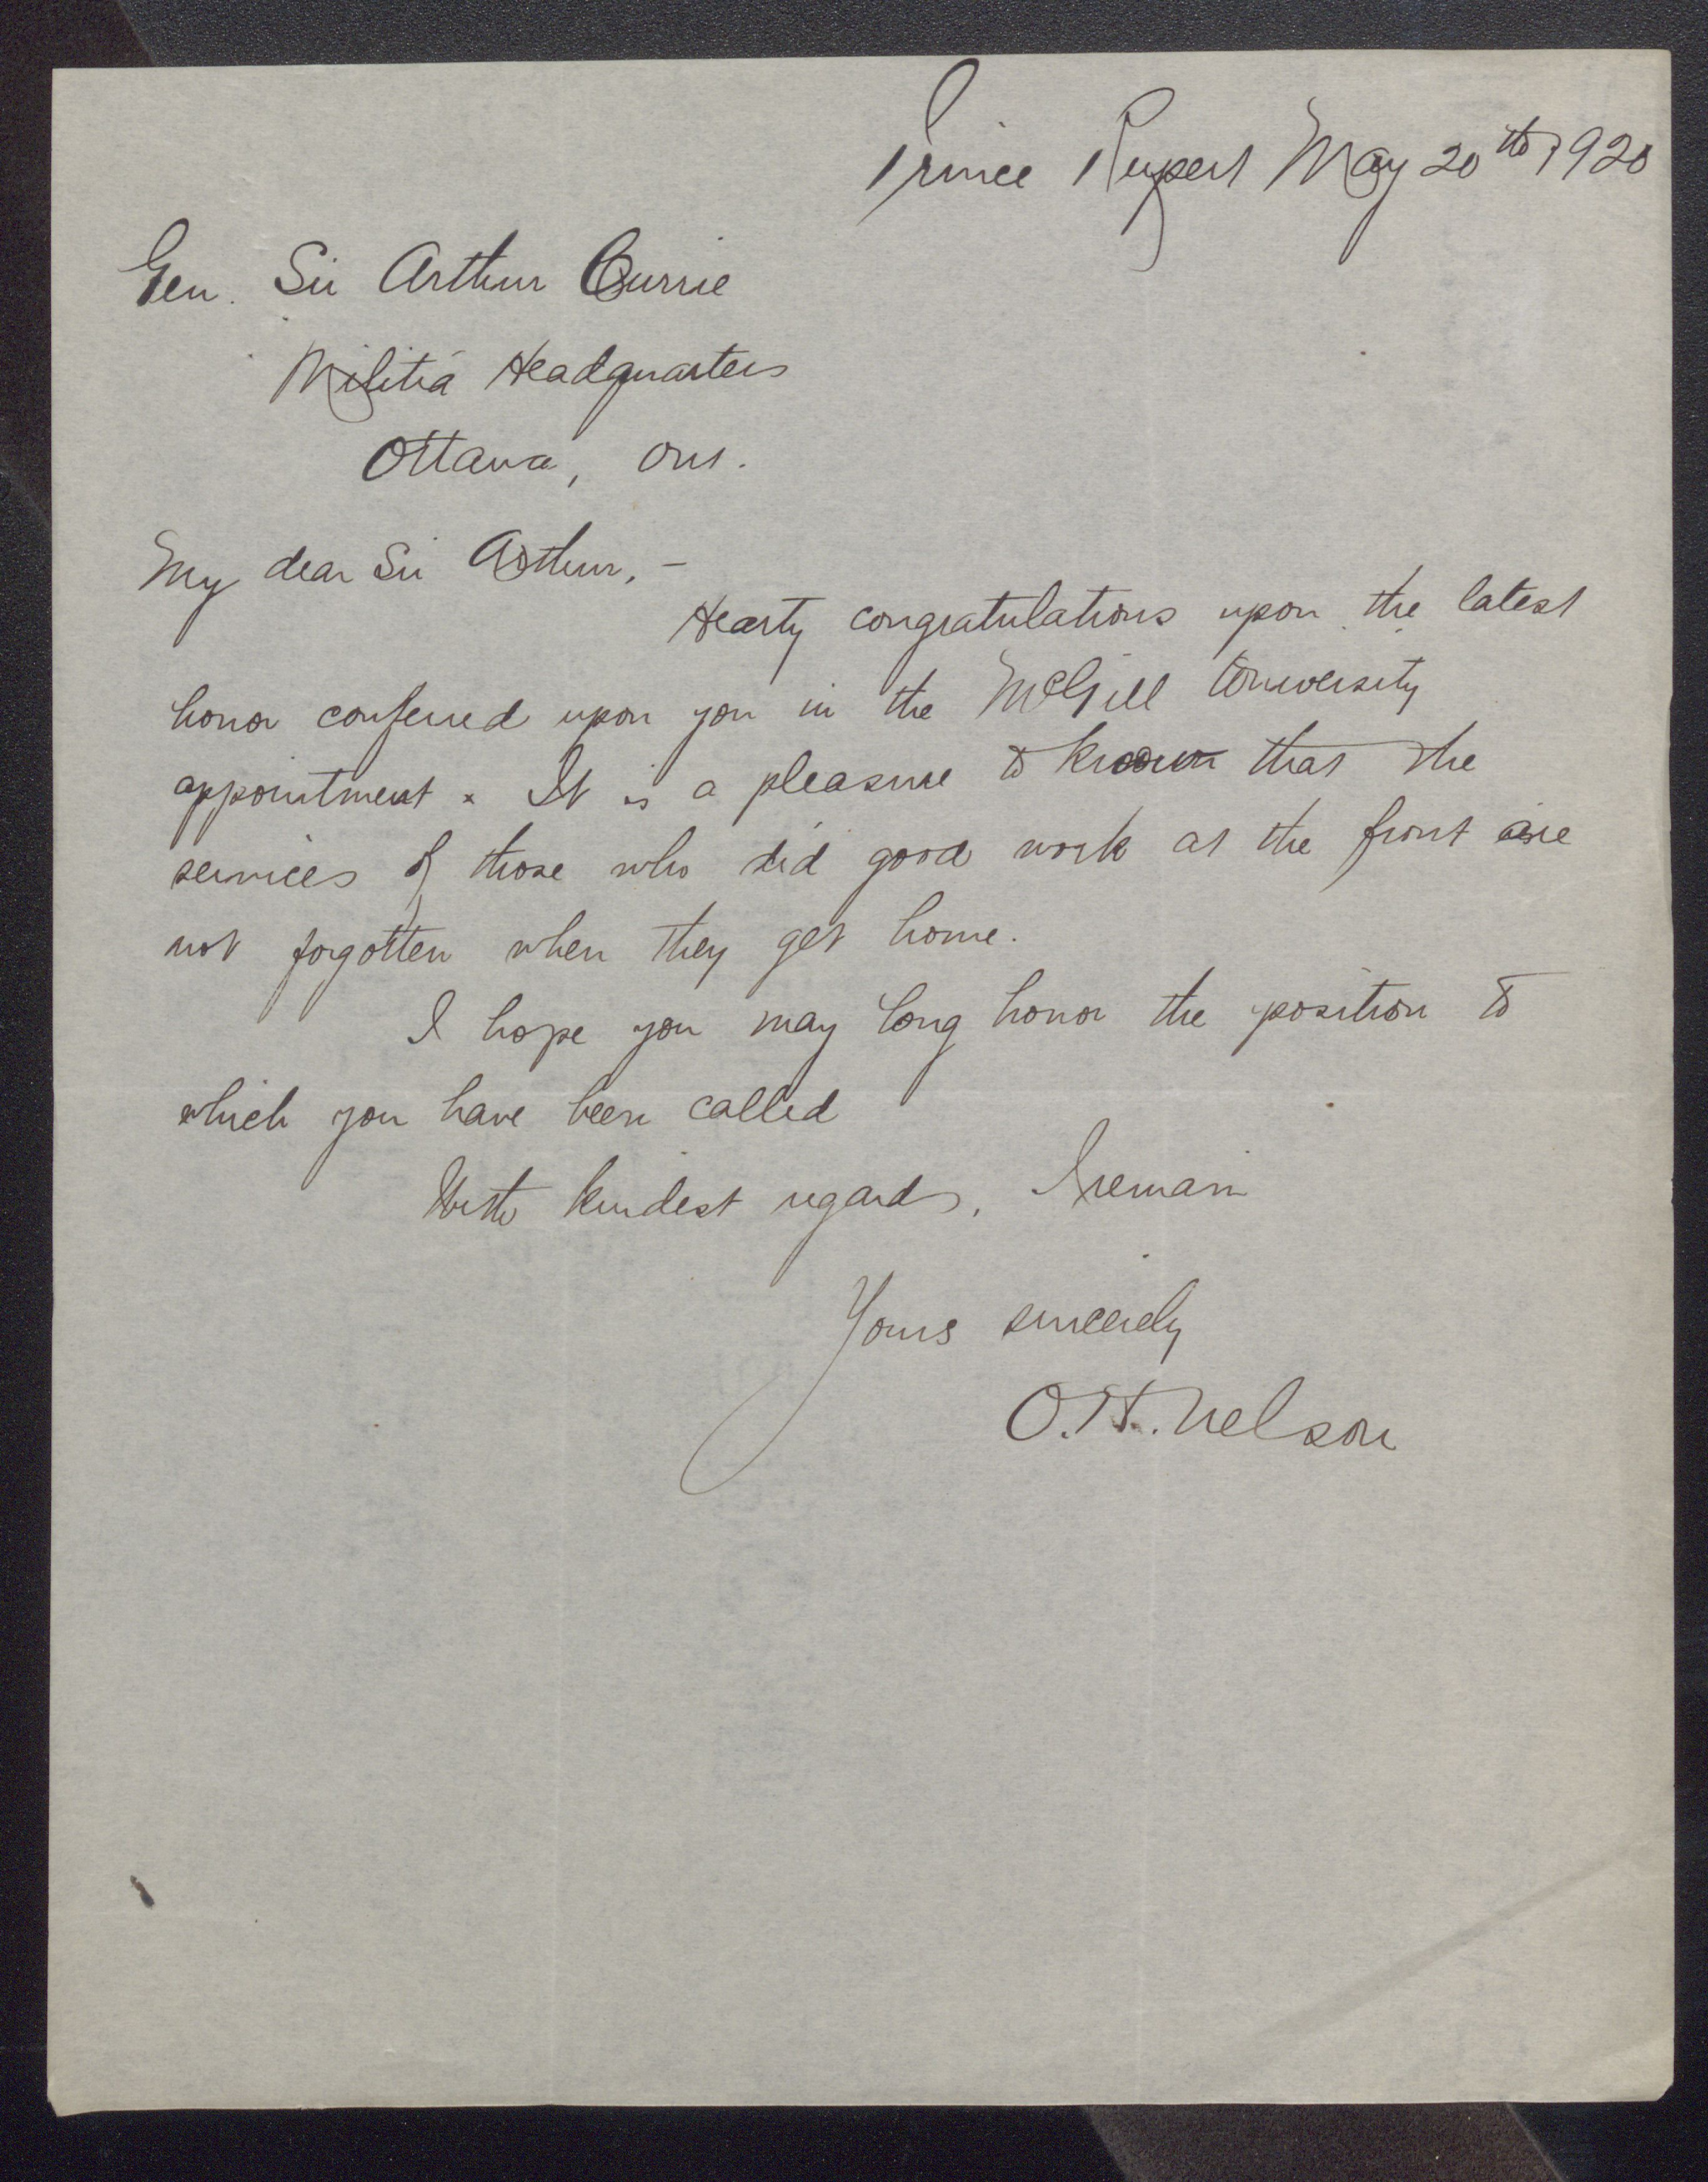 Prince Rupert May 20th 1920
Gen. Sir Arthur Currie
Militia Headquarters
Ottawa, Ont.
My dear Sir Arthur, -
Hearty congratulations upon the latest
honor conferred upon you in the McGill University
appointment. It is a pleasure to know that the
services of those who did good work at the front are
not forgotten when they get home.
I hope you may long honor the position to
which you have been called
With kindest regards, I remain
Yours sincerely
O.H. Nelson